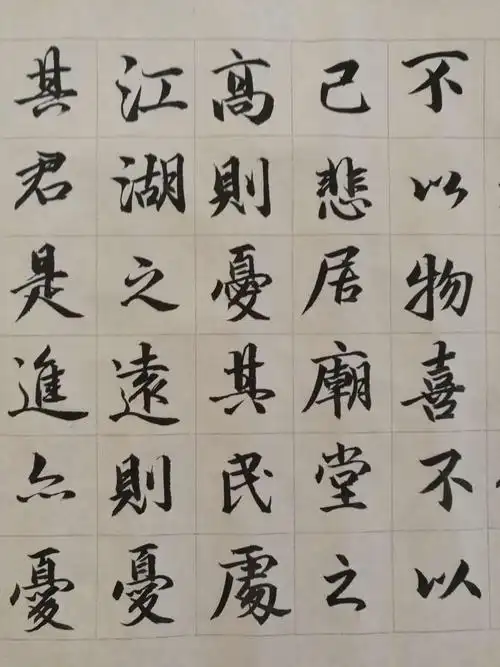 不以物喜不以
己悲居廟堂之
高則憂其民處
江湖之遠則憂
其君是進亦憂